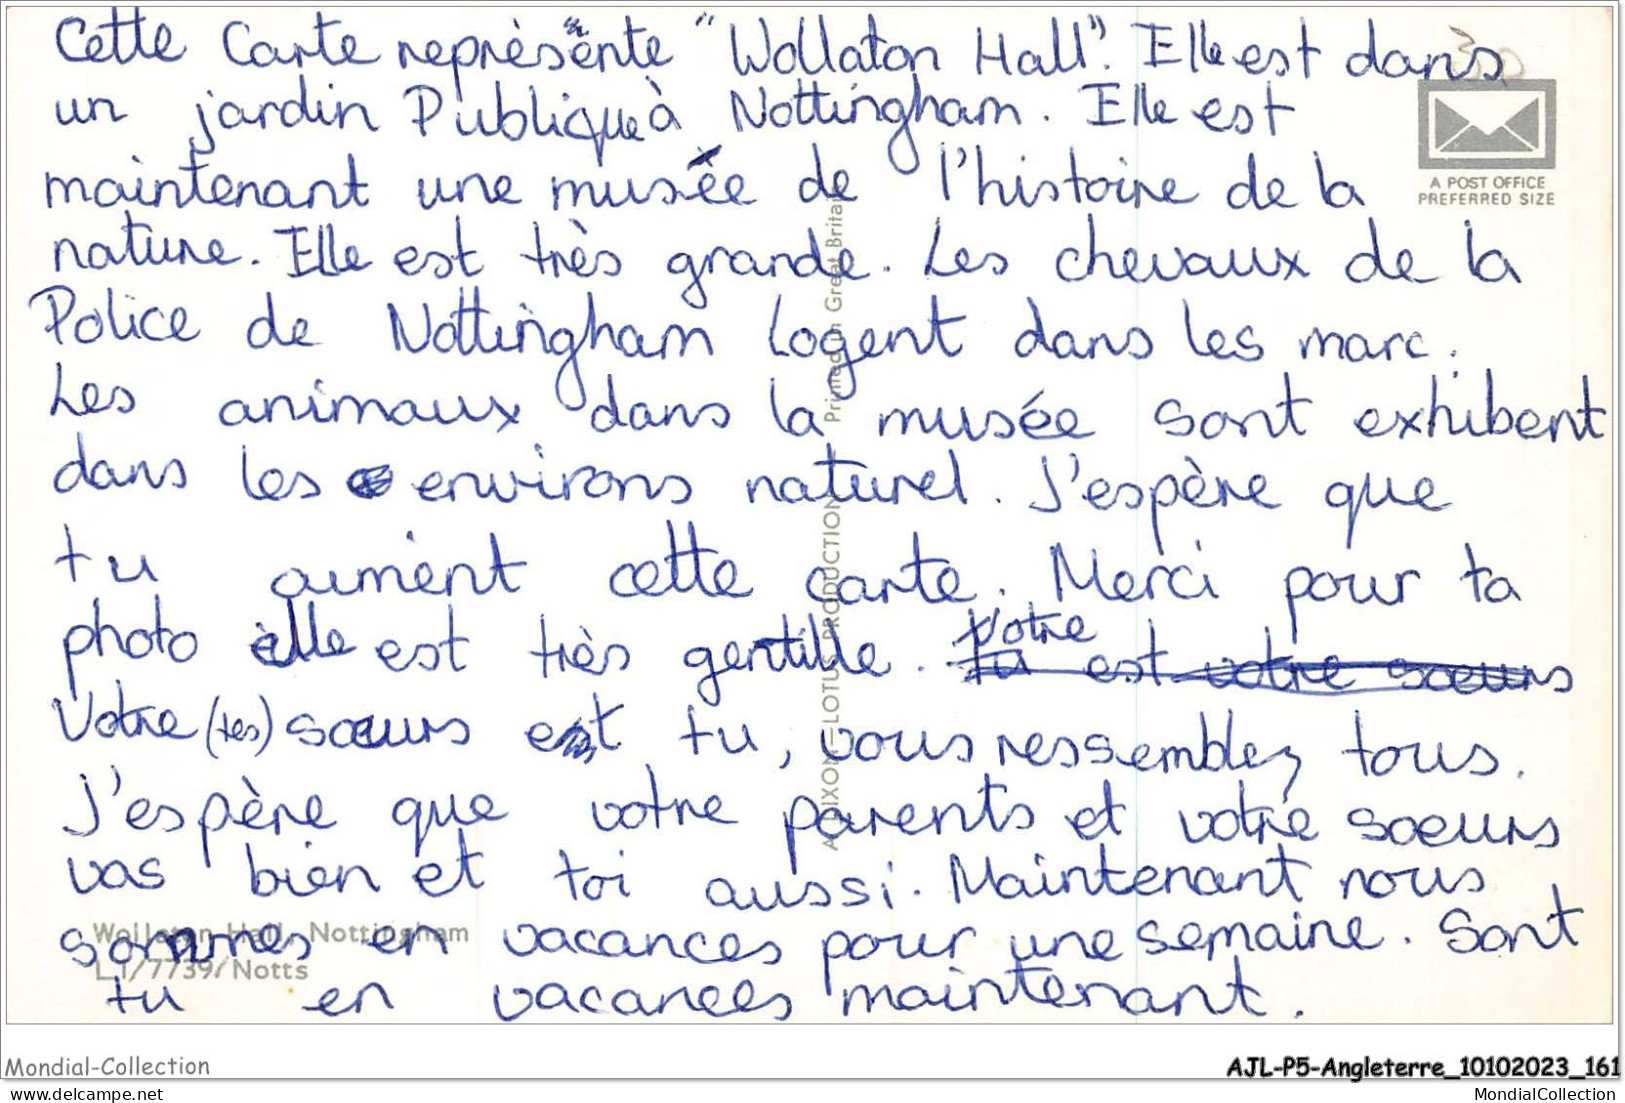 Cette Carte représente "Wollaton Hall". Elle est dans
un jardin Publique à Nottingham. Elle est
maintenant une musée de l'histoire de la
nature. Elle est très grande. Les chevaux de la
Police de Nottingham logent dans les marc.
Les animaux dans la musée sont exhibent
dans les environs naturel. J'espère que
tu aiment cette carte. Merci pour ta
photo elle est très gentille. Votre est votre sœurs
Votre (tes) sœurs est tu, vous ressemblez tous.
J'espère que votre parents et votre sœurs
vas bien et toi aussi. Maintenant nous
sommes en vacances pour une semaine. Sont
tu en vacances maintenant.
A POST OFFICE
PREFERRED SIZE
A DIXON-LOTUS PRODUCTION Printed in Great Britain
Wollaton Hall, Nottingham
L1/7739/Notts
Mondial-Collection
AJL-P5-Angleterre_10102023_161
www.delcampe.net
MondialCollection